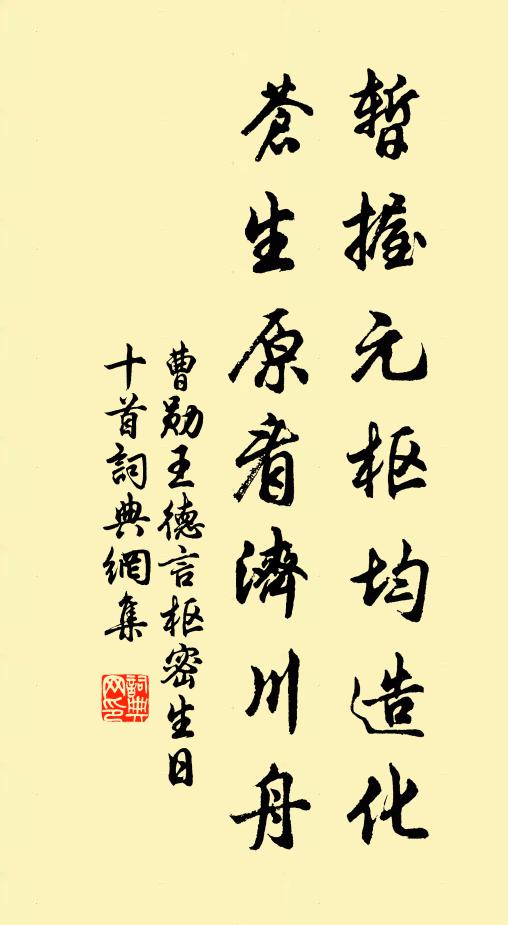 暫握元枢均造化
蒼生原看濟川舟
曹勋王德言枢密生日
十首詞典網集
詞典网印